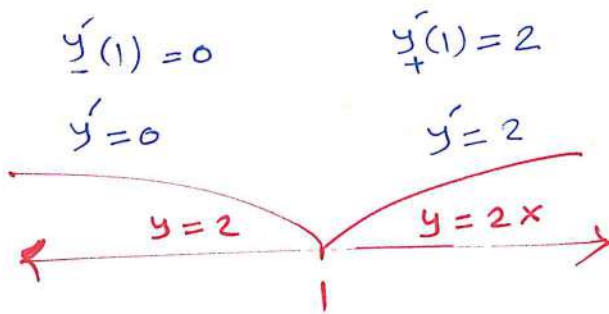 y′₋(1) = 0    y′₊(1) = 2
y′ = 0    y′ = 2
y = 2    y = 2x
1